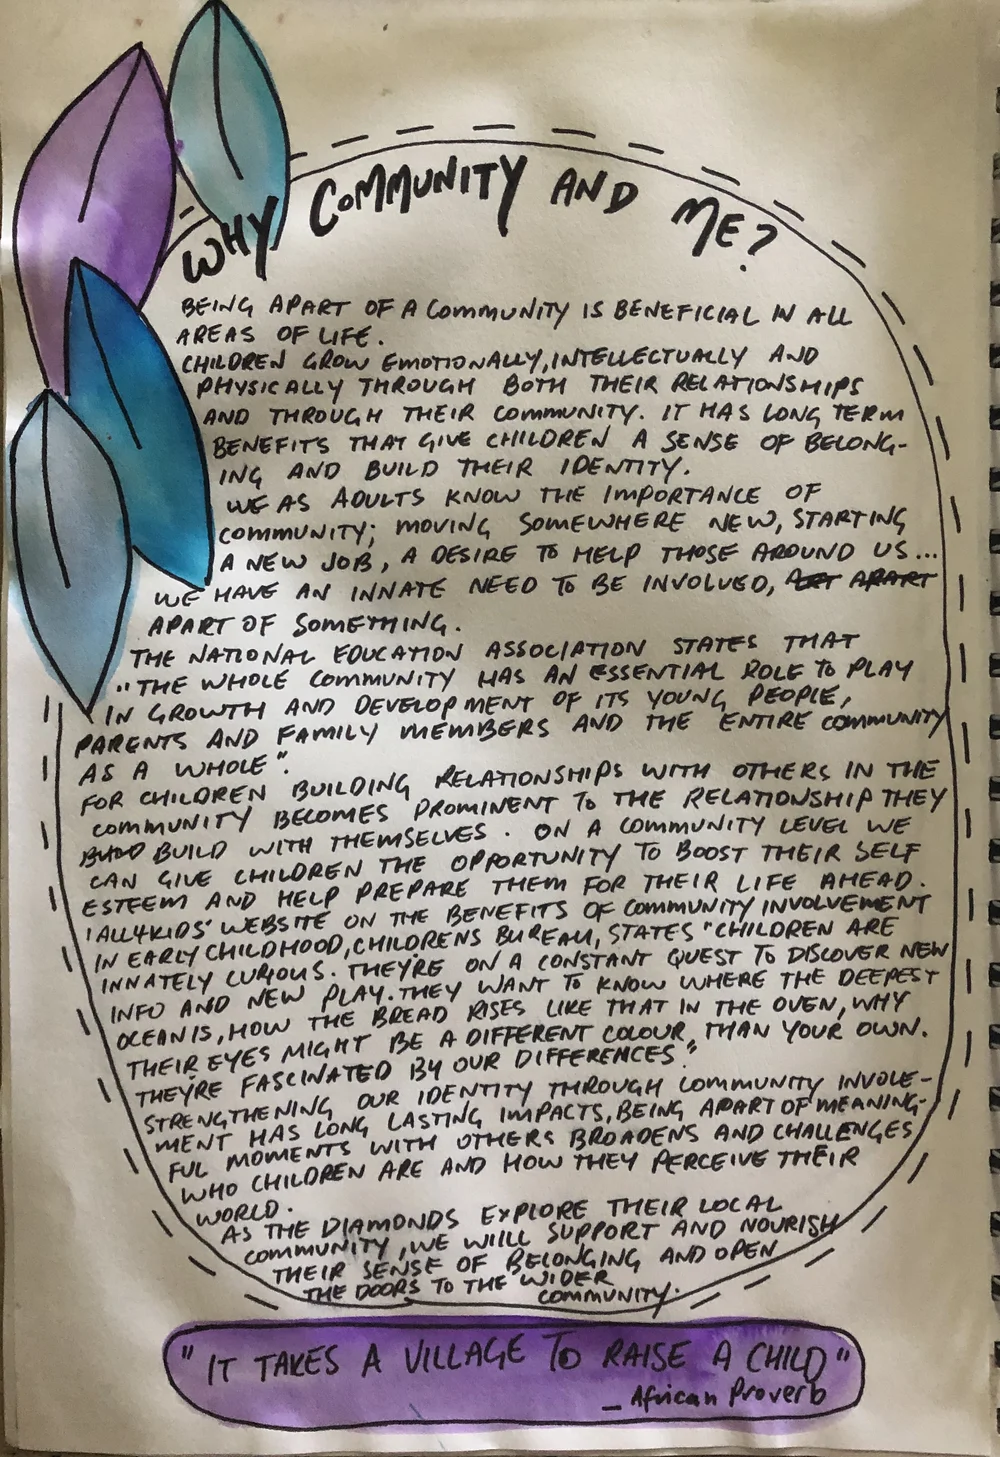 WHY COMMUNITY AND ME?
BEING APART OF A COMMUNITY IS BENEFICIAL IN ALL
AREAS OF LIFE.
CHILDREN GROW EMOTIONALLY, INTELLECTUALLY AND
PHYSICALLY THROUGH BOTH THEIR RELATIONSHIPS
AND THROUGH THEIR COMMUNITY. IT HAS LONG TERM
BENEFITS THAT GIVE CHILDREN A SENSE OF BELONG-
ING AND BUILD THEIR IDENTITY.
WE AS ADULTS KNOW THE IMPORTANCE OF
COMMUNITY; MOVING SOMEWHERE NEW, STARTING
A NEW JOB, A DESIRE TO HELP THOSE AROUND US...
WE HAVE AN INNATE NEED TO BE INVOLVED, APART
APART OF SOMETHING.
THE NATIONAL EDUCATION ASSOCIATION STATES THAT
"THE WHOLE COMMUNITY HAS AN ESSENTIAL ROLE TO PLAY
IN GROWTH AND DEVELOPMENT OF ITS YOUNG PEOPLE,
PARENTS AND FAMILY MEMBERS AND THE ENTIRE COMMUNITY
AS A WHOLE".
FOR CHILDREN BUILDING RELATIONSHIPS WITH OTHERS IN THE
COMMUNITY BECOMES PROMINENT TO THE RELATIONSHIP THEY
BUILD WITH THEMSELVES. ON A COMMUNITY LEVEL WE
CAN GIVE CHILDREN THE OPPORTUNITY TO BOOST THEIR SELF
ESTEEM AND HELP PREPARE THEM FOR THEIR LIFE AHEAD.
'ALL4KIDS' WEBSITE ON THE BENEFITS OF COMMUNITY INVOLVEMENT
IN EARLY CHILDHOOD, CHILDRENS BUREAU, STATES "CHILDREN ARE
INNATELY CURIOUS. THEY'RE ON A CONSTANT QUEST TO DISCOVER NEW
INFO AND NEW PLAY. THEY WANT TO KNOW WHERE THE DEEPEST
OCEAN IS, HOW THE BREAD RISES LIKE THAT IN THE OVEN, WHY
THEIR EYES MIGHT BE A DIFFERENT COLOUR, THAN YOUR OWN.
THEY'RE FASCINATED BY OUR DIFFERENCES."
STRENGTHENING OUR IDENTITY THROUGH COMMUNITY INVOLE-
MENT HAS LONG LASTING IMPACTS, BEING APART OF MEANING-
FUL MOMENTS WITH OTHERS BROADENS AND CHALLENGES
WHO CHILDREN ARE AND HOW THEY PERCEIVE THEIR
WORLD.
AS THE DIAMONDS EXPLORE THEIR LOCAL
COMMUNITY, WE WIILL SUPPORT AND NOURISH
THEIR SENSE OF BELONGING AND OPEN
THE DOORS TO THE WIDER
COMMUNITY.
"IT TAKES A VILLAGE TO RAISE A CHILD"
_ African Proverb